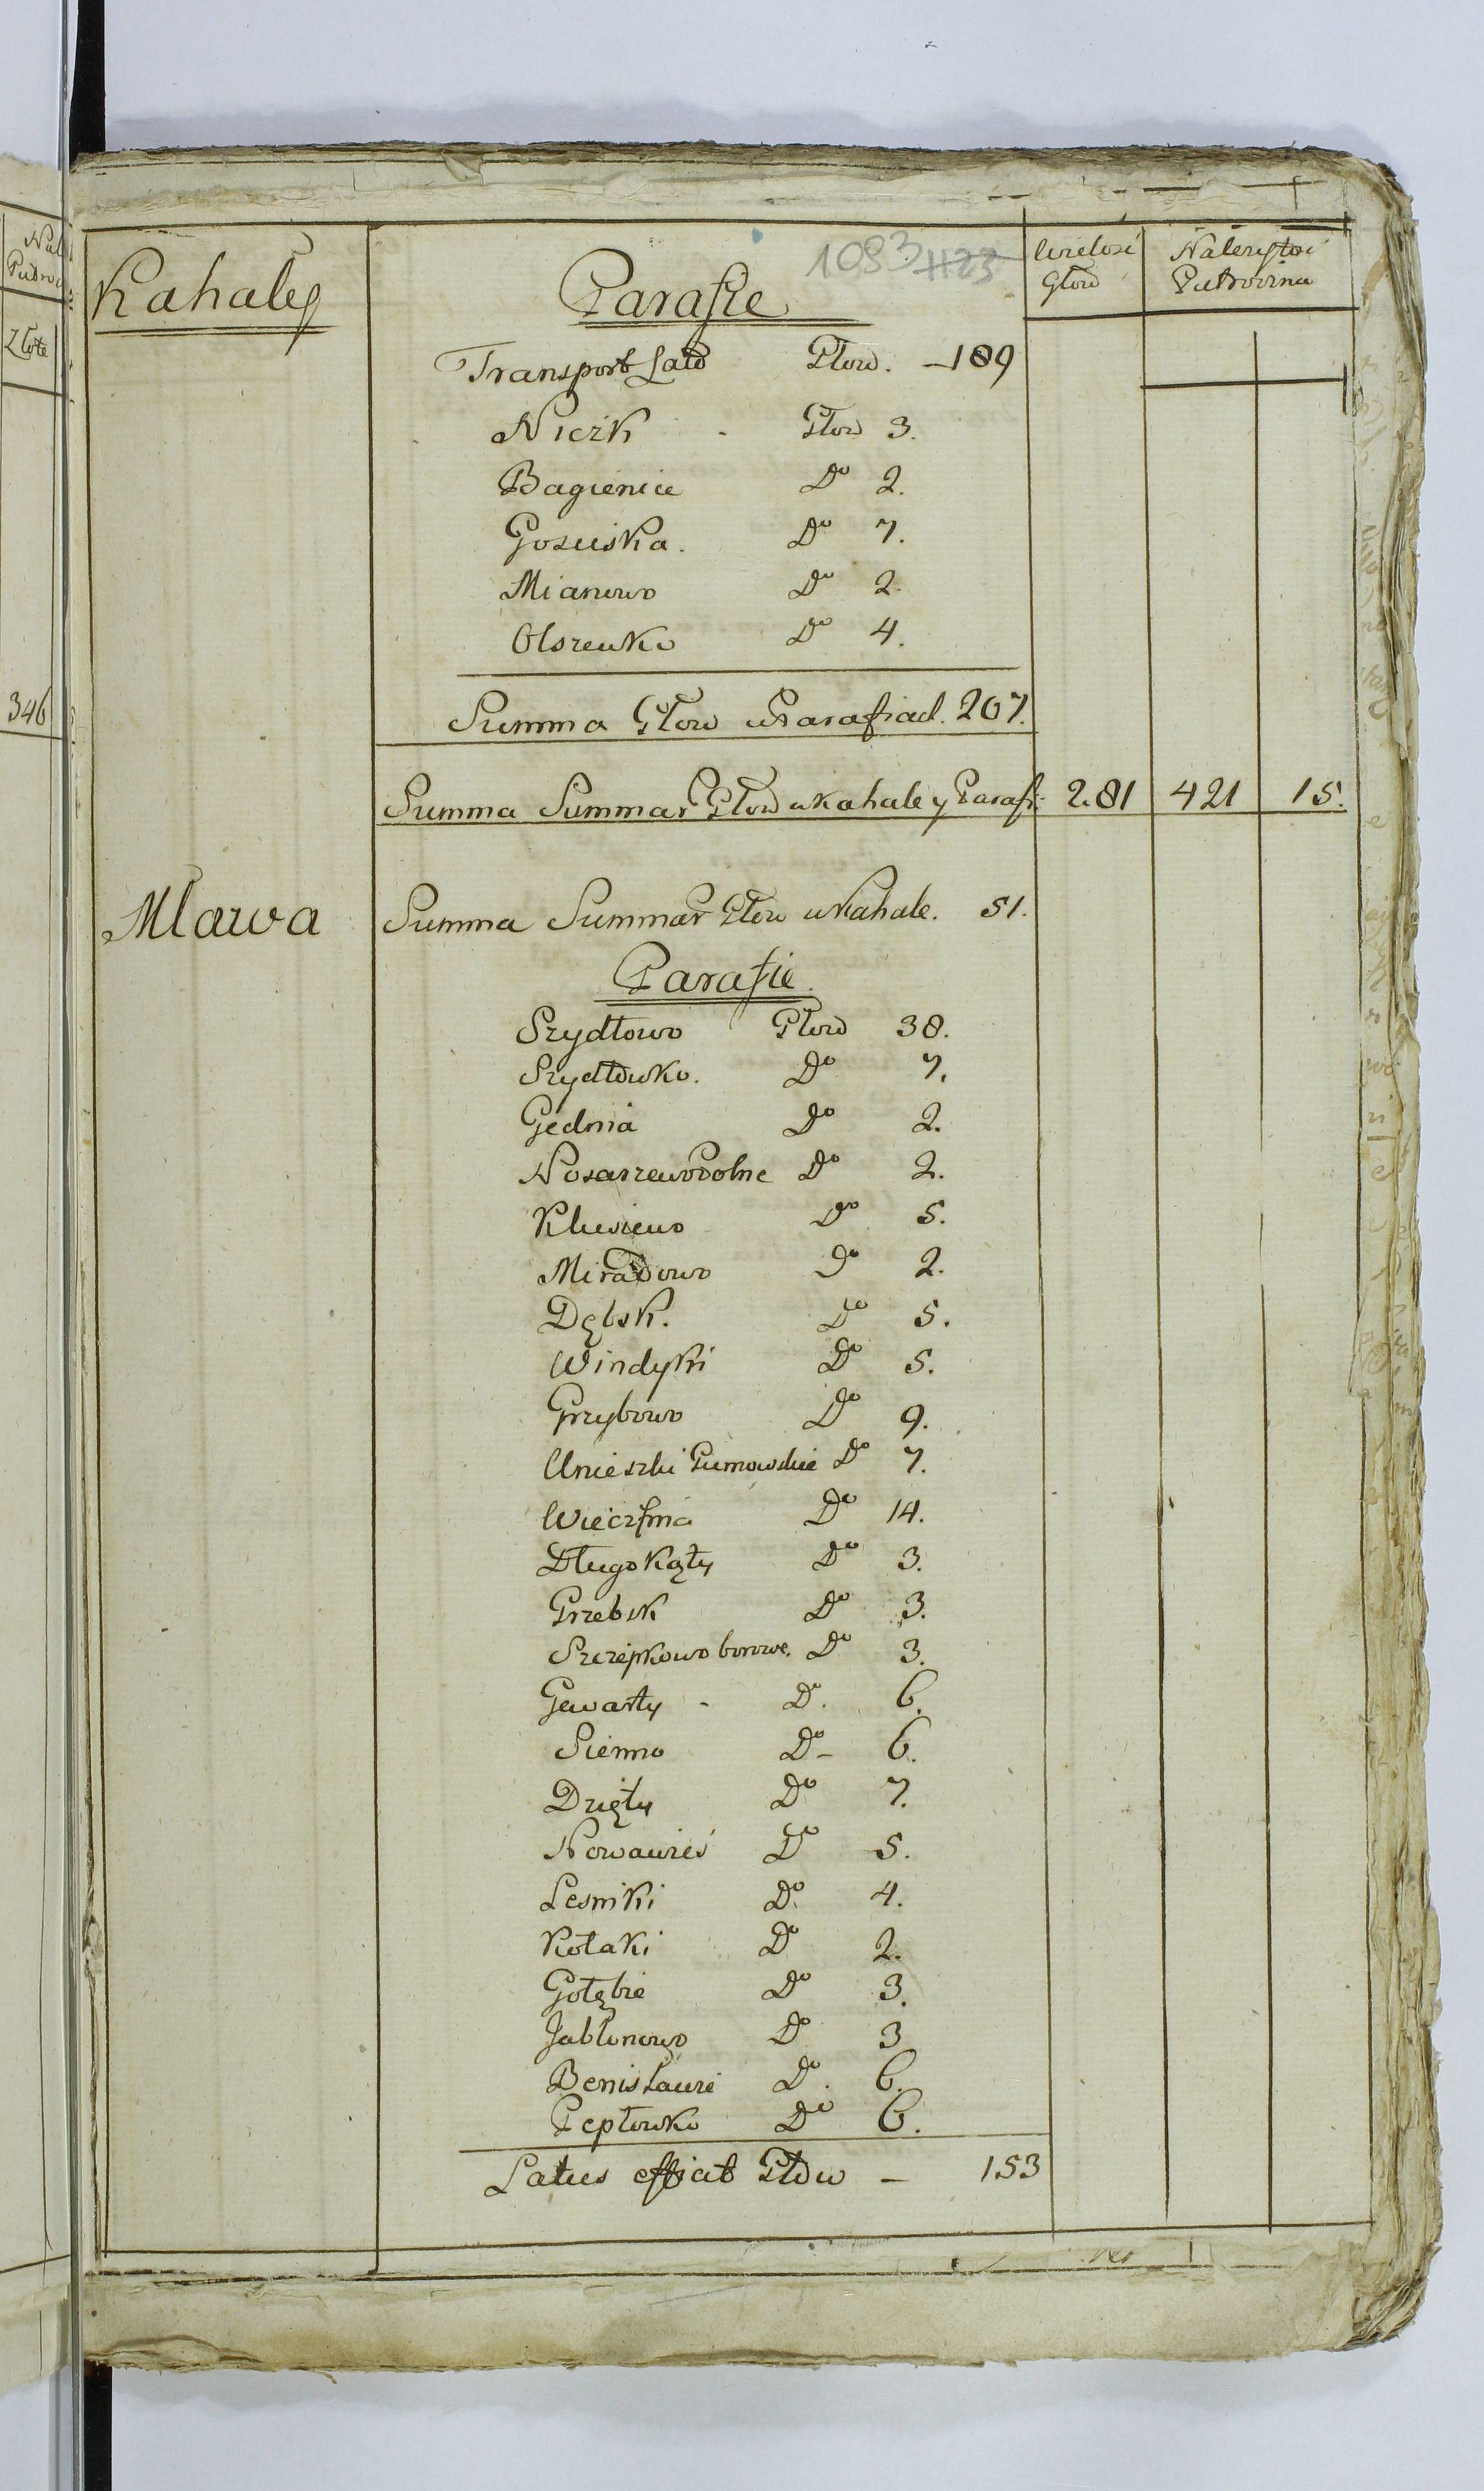 Kahały
Parafie
1093 1123
Wielość Głow
Należytość Putroczna
Transport Lato Głow. — 189
Niczk - Głow 3.
Bagienice Do 2.
Gosciska. Do 7.
Mianowo Do 2.
Olszewko Do 4.
Summa Głow w Parafiach. 207.
Summa Summar Głow w Kahale y Parafi: 281 421 15.
Mlawa
Summa Summar Głow w Kahale. 51.
Parafie.
Szydłowo Głow 38.
Szydłowko. Do 7.
Gednia Do 2.
Nosarzewo Polne Do 2.
Kluszewo Do 5.
Miradowo Do 2.
Dębsk. Do 5.
Windyki Do 5.
Grzybowo Do 9.
Unieszki Gumowskie Do 7.
Wieczfnia Do 14.
Długokąty Do 3.
Grzebsk Do 3.
Szczepkowo borowe. Do 3.
Gwarty - Do. 6.
Sienno Do - 6.
Dzięty Do 7.
Nowawieś Do 5.
Lesniki Do 4.
Kołaki Do 2.
Gołębie Do 3.
Jabłonowo Do 3
Benisławie Do. 6.
Pepłowko Do 6.
Latus efficit Głow — 153
Złote
346